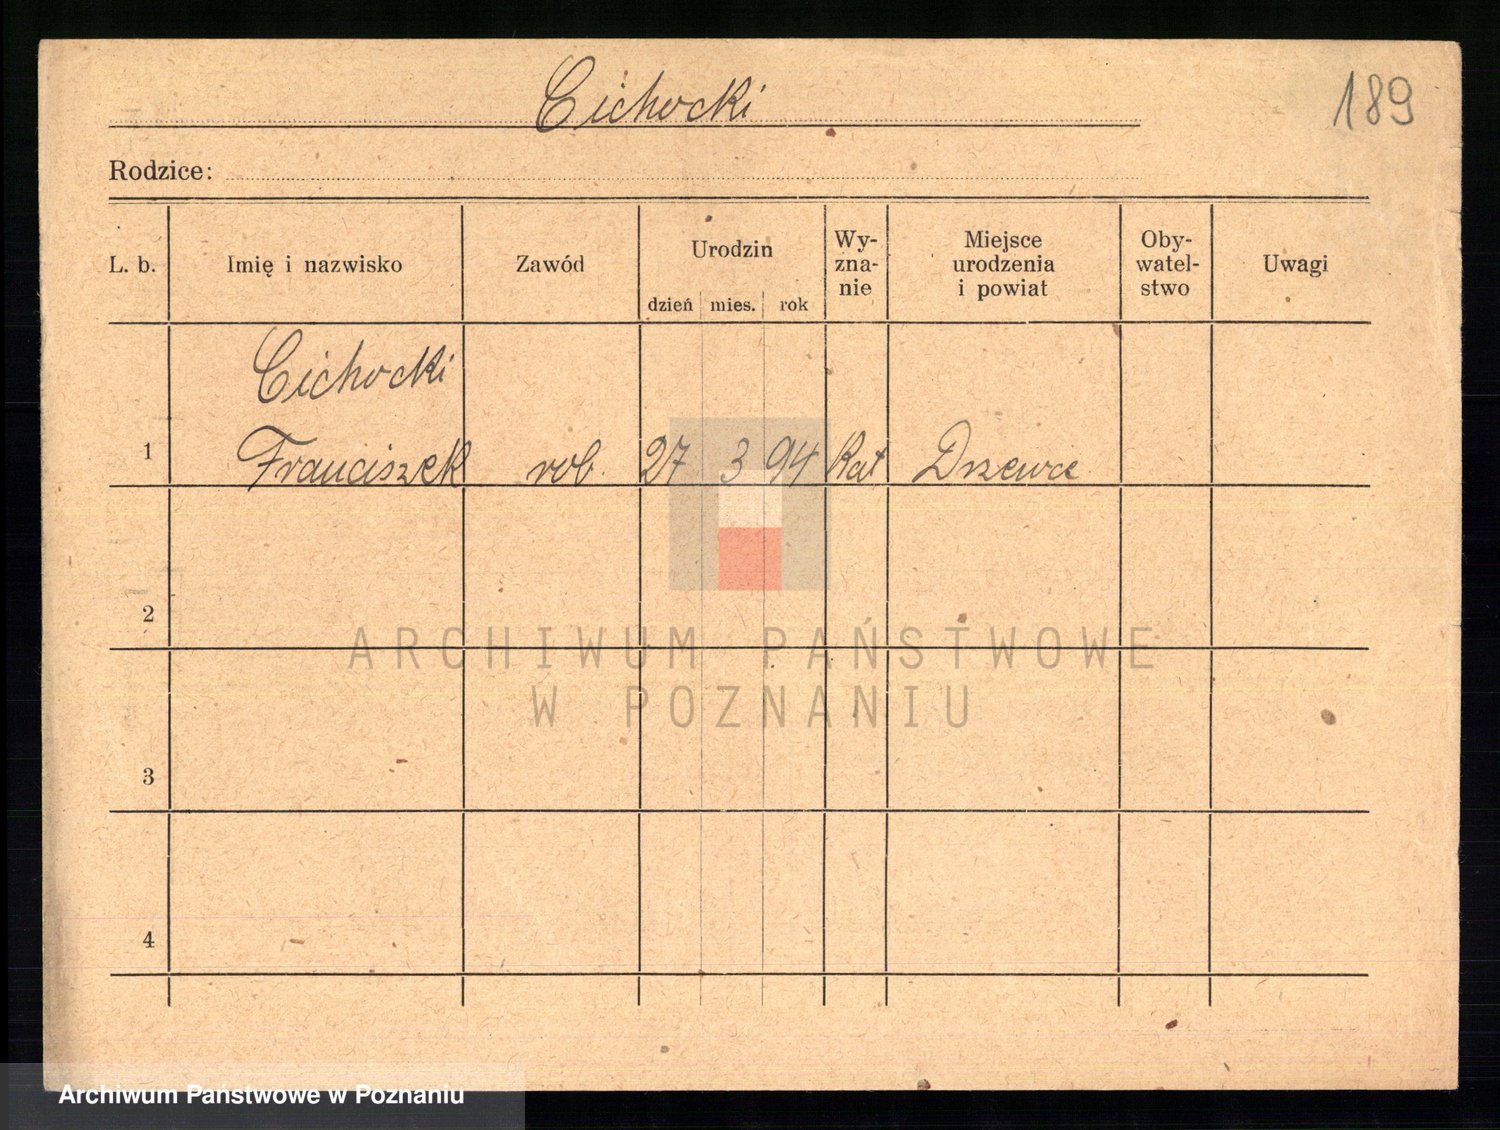 Cichocki
189
Rodzice:
L. b. Imię i nazwisko Zawód Urodzin Wy- zna- nie Miejsce urodzenia i powiat Oby- watel- stwo Uwagi
dzień mies. rok
Cichocki
1 Franciszek rob. 27 3 94 Kat Drzewce
2
ARCHIWUM PAŃSTWOWE
W POZNANIU
3
4
Archiwum Państwowe w Poznaniu